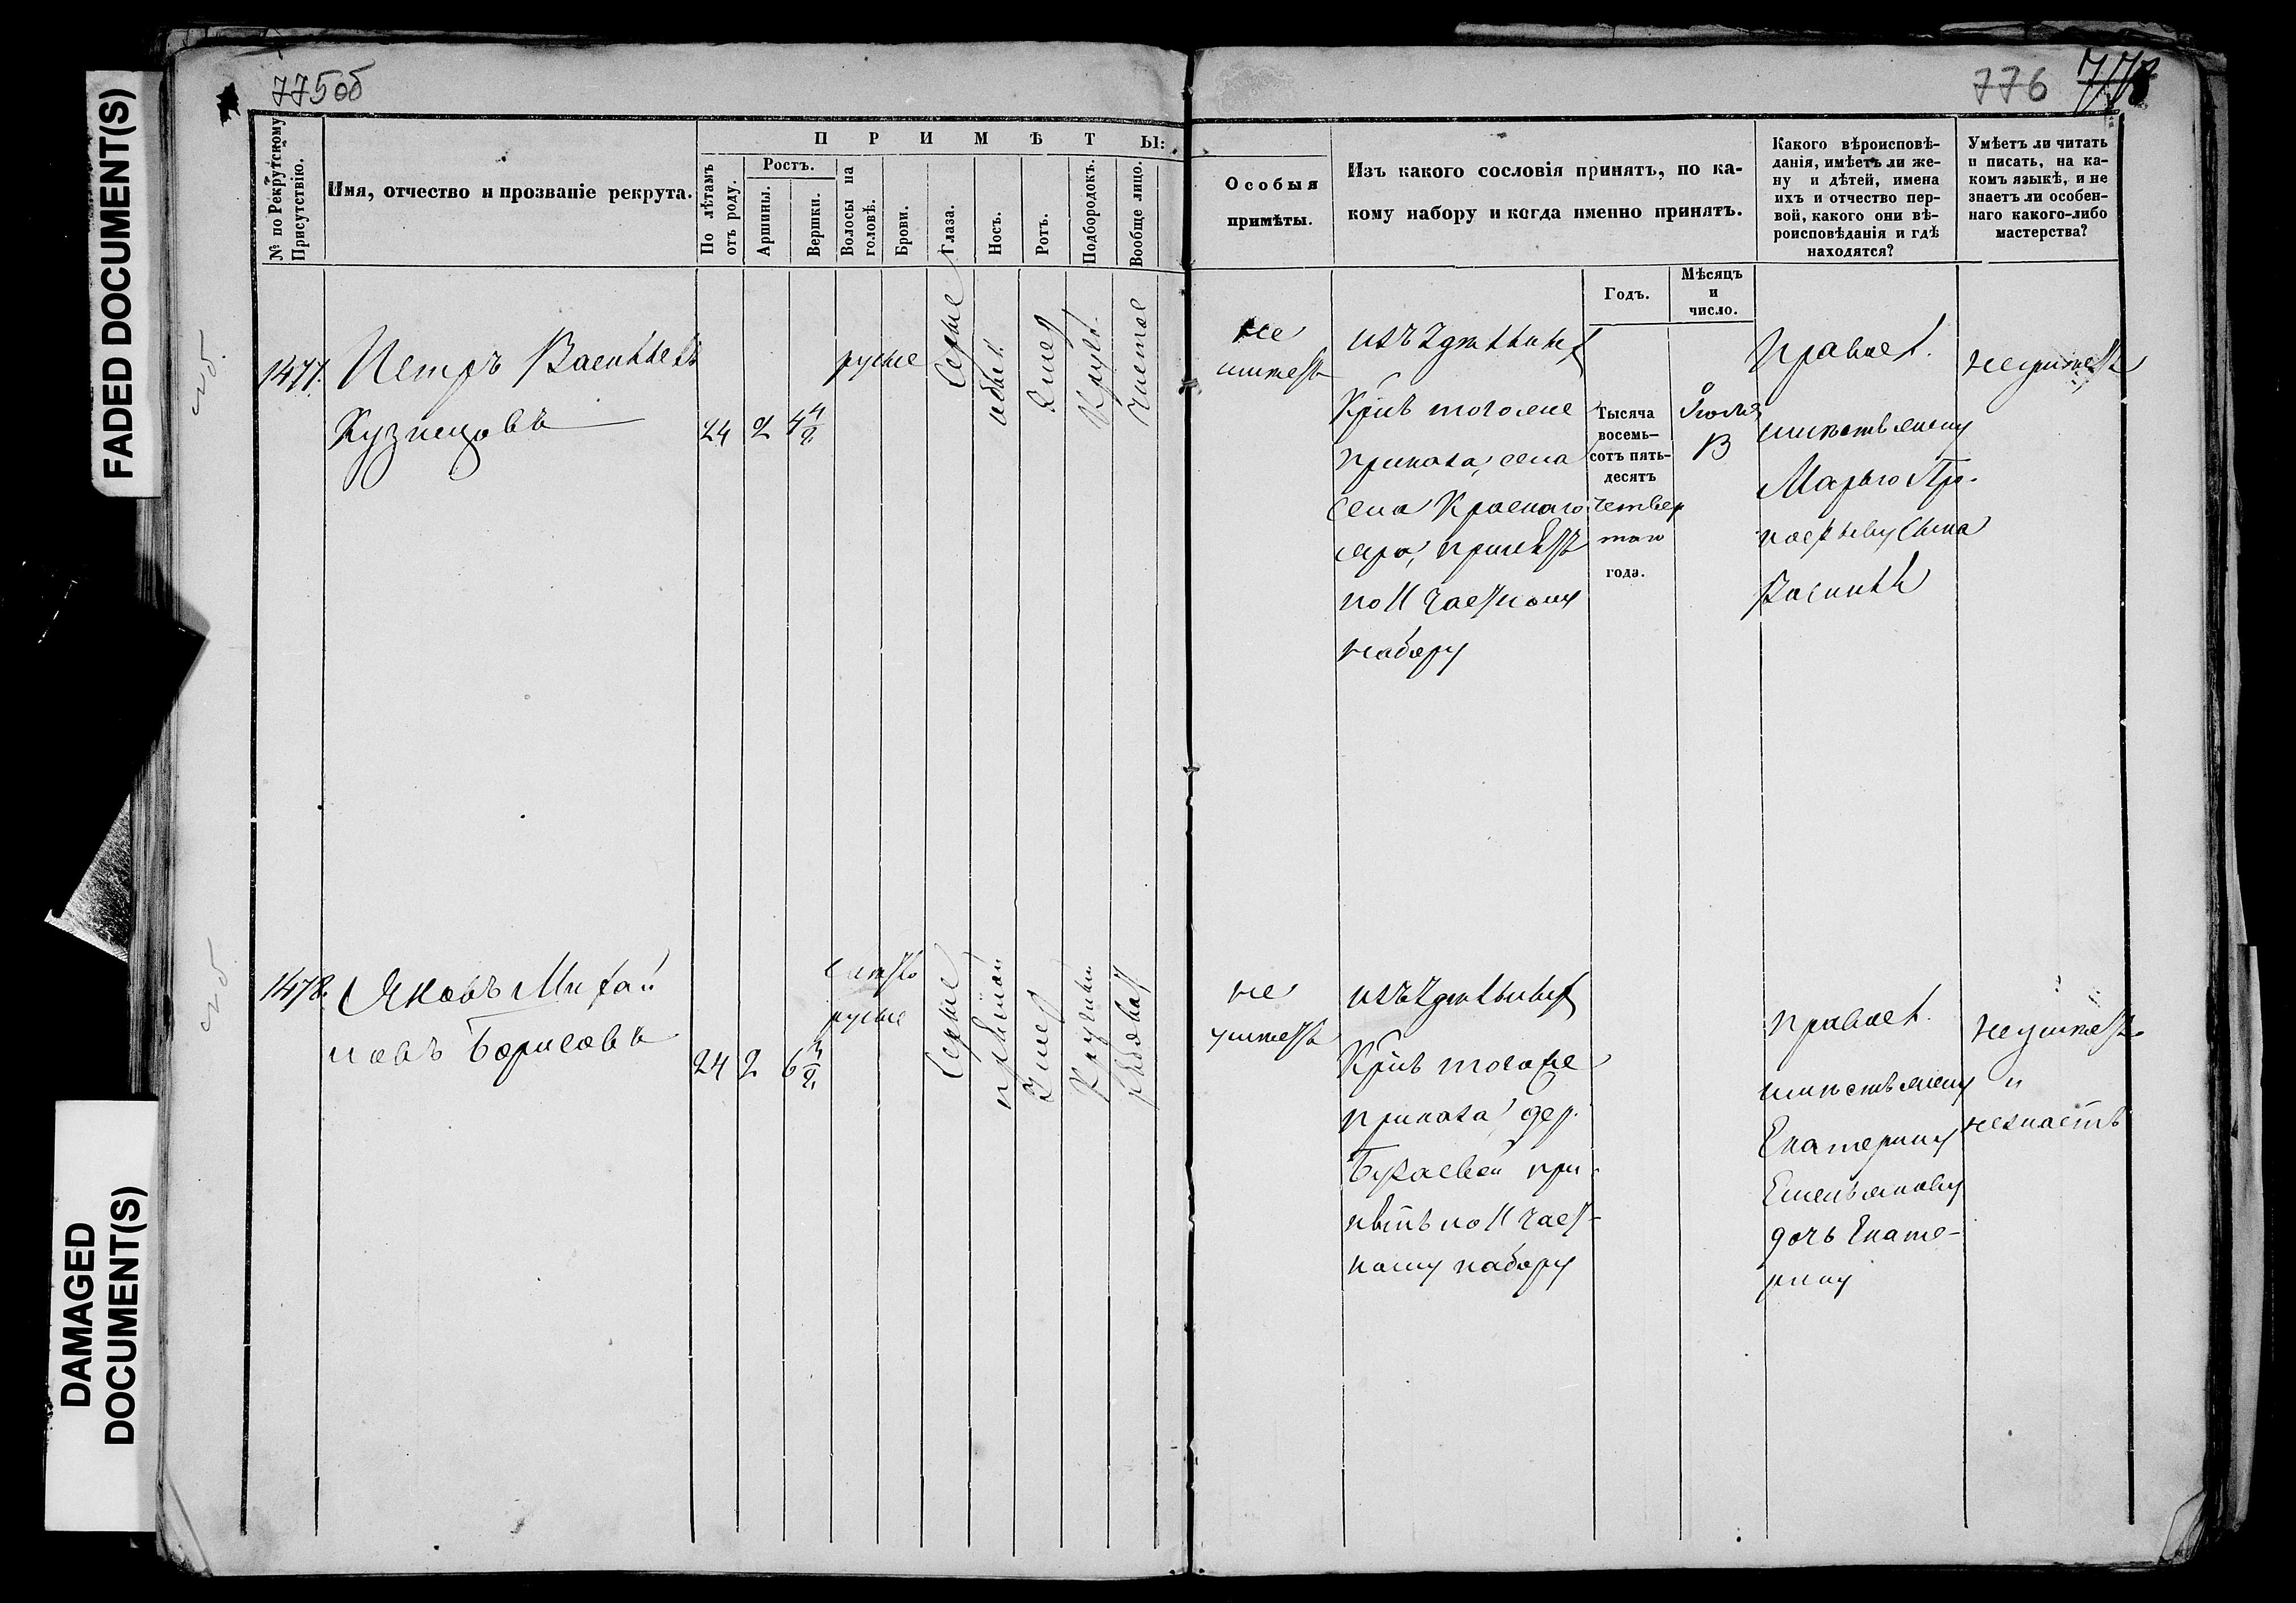 FADED DOCUMENT(S)
DAMAGED
DOCUMENT(S)
775об
776
№ по Рекрутскому
Присутствію.
Имя, отчество и прозваніе рекрута.
П Р И М Ѣ Т Ы:
По лѣтамъ
отъ роду.
Ростъ.
Аршины.
Вершки.
Волосы на
головѣ.
Брови.
Глаза.
Носъ.
Ротъ.
Подбородокъ.
Вообще лицо.
Особыя
примѣты.
Изъ какого сословія принятъ, по ка-
кому набору и когда именно принятъ.
Годъ.
Мѣсяцъ
и
число.
Какого вѣроисповѣ-
данія, имѣетъ ли же-
ну и дѣтей, имена
ихъ и отчество пер-
вой, какого они вѣ-
роисповѣданія и гдѣ
находятся?
Умѣетъ ли читать
и писать, на ка-
комъ языкѣ, и не
знаетъ ли особен-
наго какого-либо
мастерства?
1477.
Петръ Васильевъ
Кузнецовъ
24
2
4 4/8
русые
Серые
обык.
Умер
Кругл.
Чистое
не
имеетъ
изъ Удѣльныхъ
Крѣв тогоже
приказа, села
села Красного
яра, принятъ
по 11 частному
набору
Тысяча
восемь-
сотъ пять-
десятъ
четвер
таго
года.
Іюля
13
правосл.
имѣетъ жену
Марью Про-
кофьеву сына
Василья
неумѣетъ
1478.
Яковъ Михай
ловъ Борисовъ
24
2
6 3/8
светло
русые
Серые
прямой
Умер
Круглый
рябоват
не
имеетъ
изъ Удѣльныхъ
Крѣв тогоже
приказа, дер.
при-
нятъ по 11 част-
ному набору
правосл.
имѣетъ жену
Екатерину
Емельянову
дочь Екате-
рину
неумѣетъ
и
незнаетъ